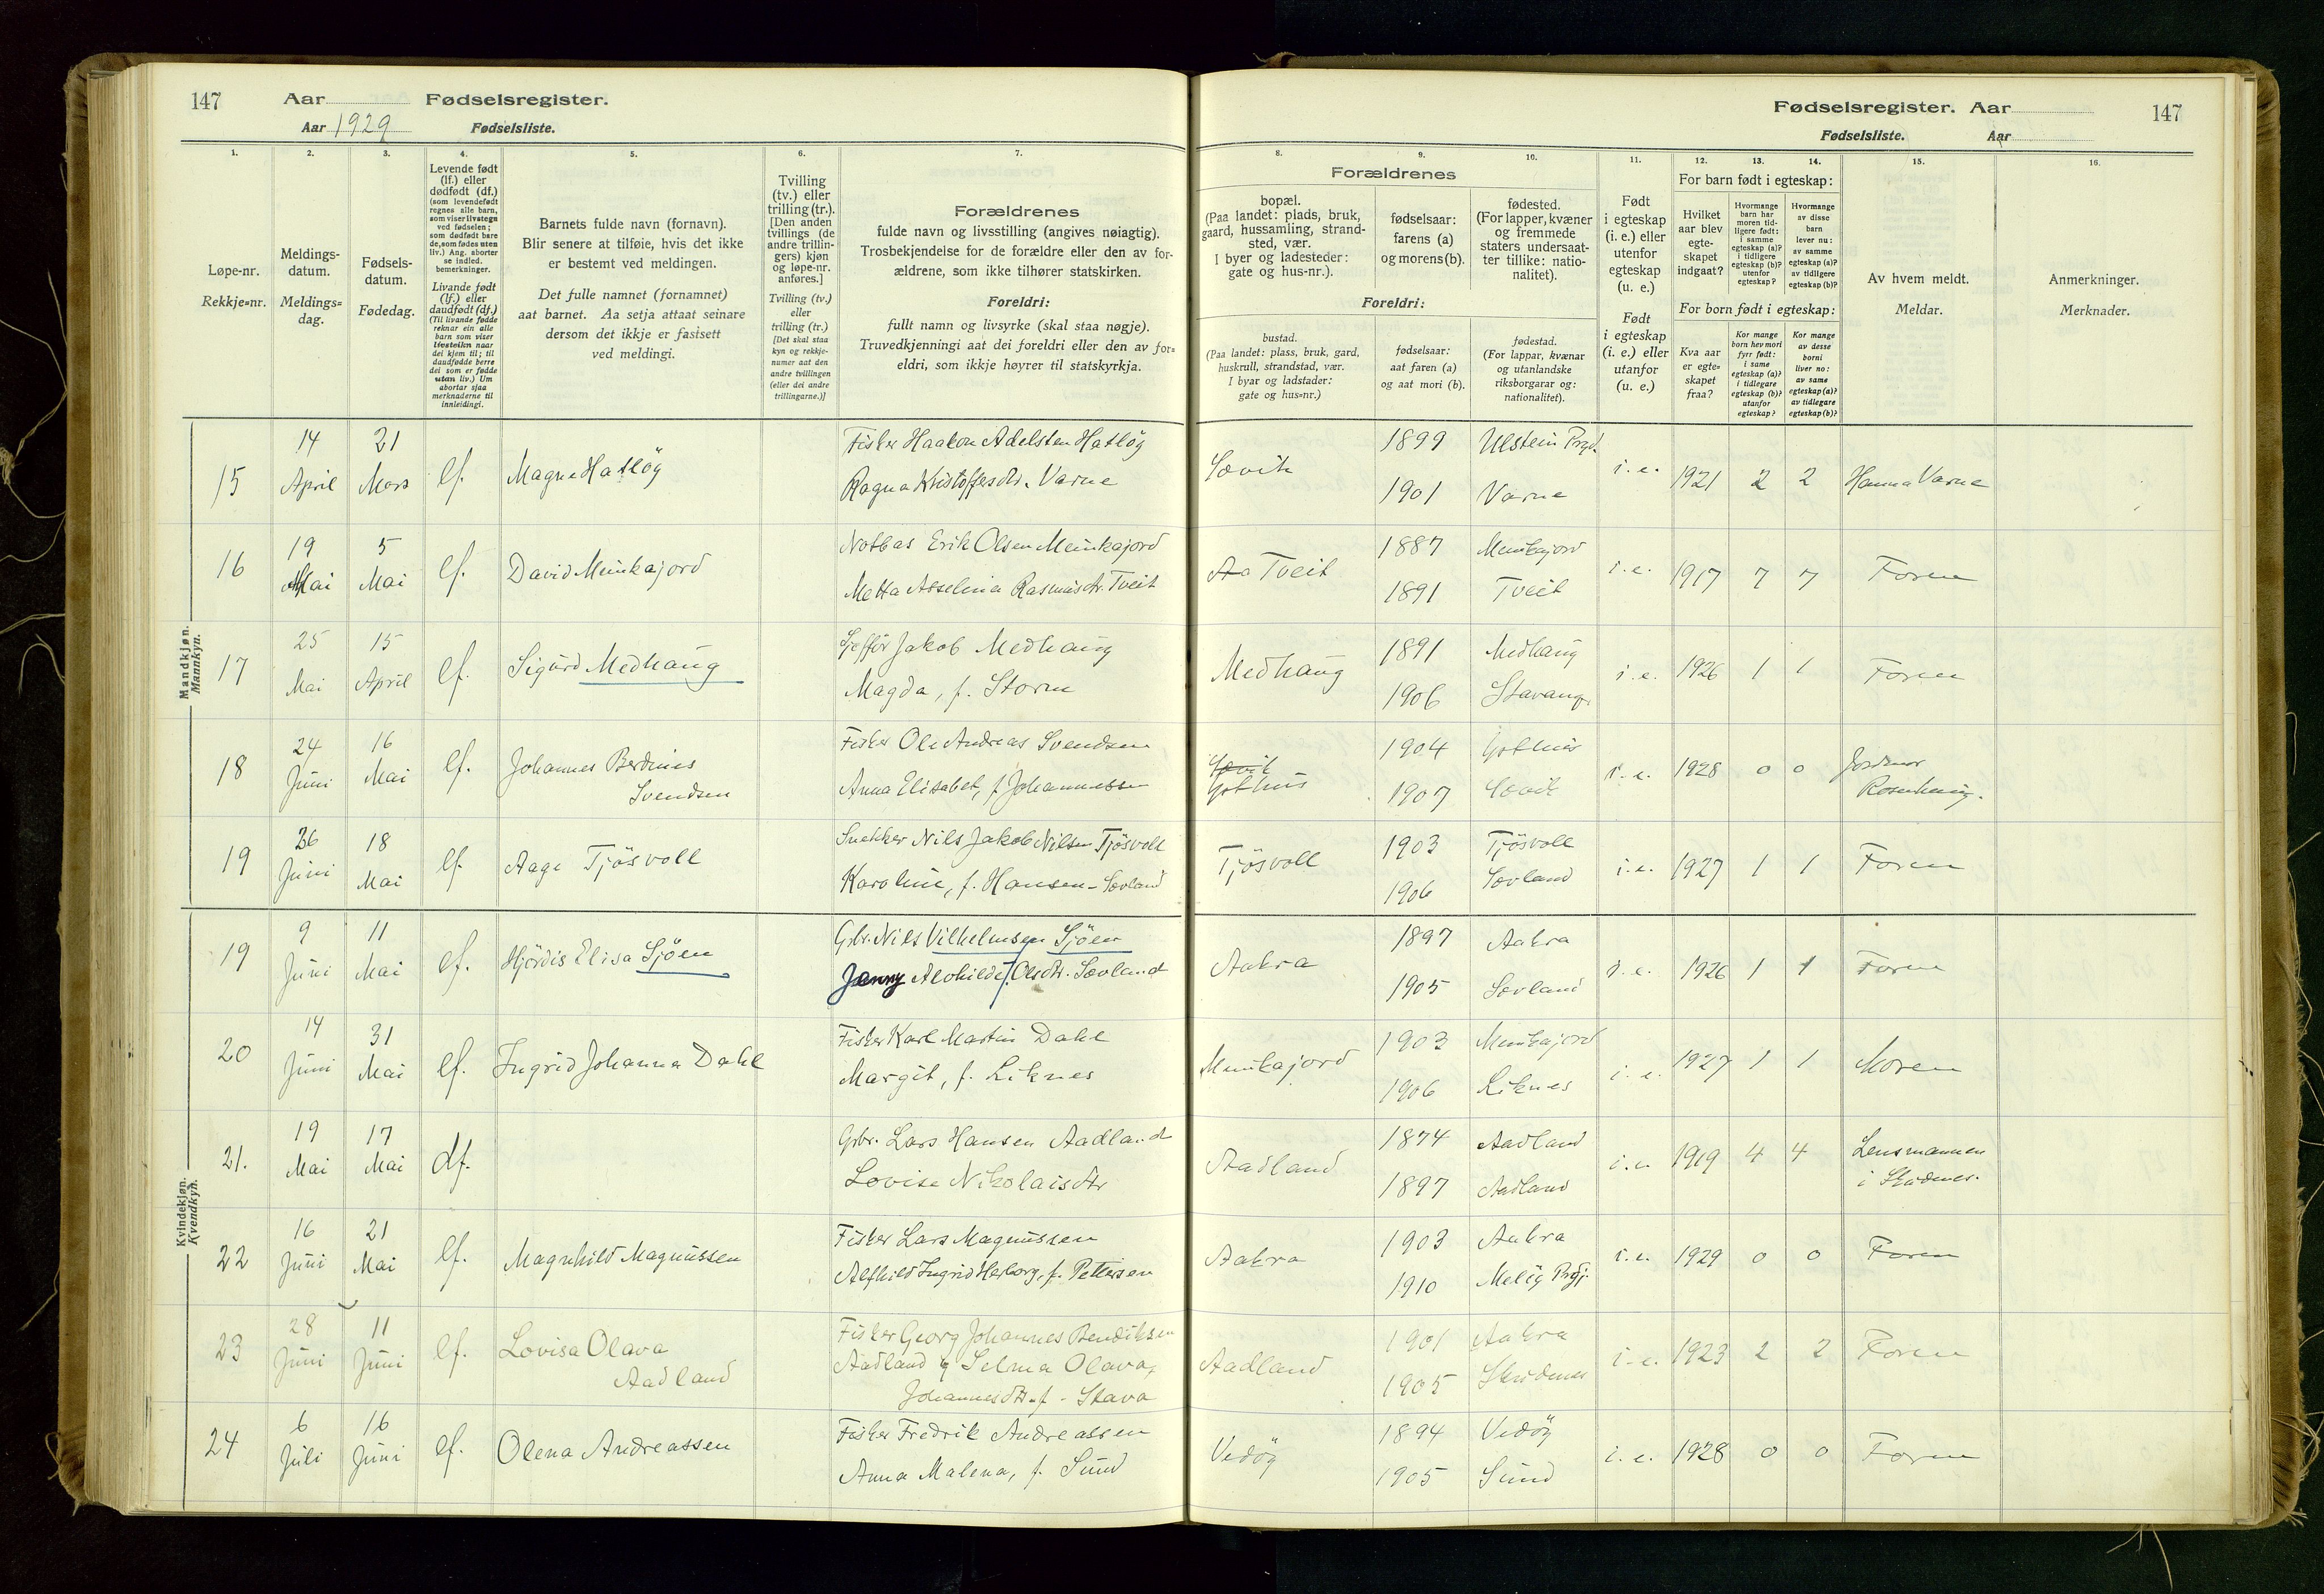 147 Aar Fødselsregister.
Aar 1929 Fødselsliste.
Fødselsregister. Aar 147
Fødselsliste. Aar
1. 2. 3. 4. 5. 6. 7. 8. 9. 10. 11. 12. 13. 14. 15. 16.
Løpe-nr.
Rekkje=nr.
Meldings-
datum.
Meldings=
dag.
Fødsels-
datum.
Fødedag.
Levende født
(lf.) eller
dødfødt (df.)
(som levendefødt
regnes alle barn,
som viser livstegn
ved fødselen;
som dødfødt bare
de, som fødes uten
liv.) Ang. aborter
se indled.
bemerkninger.
Livande født
(lf.) eller
daudfødt (df.)
(Til livande fødde
reknar ein alle
barn som viser
livsteikn naar
dei kjem til; til
daudfødde berre
dei som er fødde
utan liv.) Um
abortar sjaa
merknaderne til
innleidingi.
Barnets fulde navn (fornavn).
Blir senere at tilføie, hvis det ikke
er bestemt ved meldingen.
Det fulle namnet (fornamnet)
aat barnet. Aa setja attaat seinare
dersom det ikkje er fastsett
ved meldingi.
Tvilling
(tv.) eller
trilling (tr.).
[Den anden
tvillings (de
andre trillin-
gers) kjøn
og løpe-nr.
anføres.]
Tvilling (tv.)
eller
trilling (tr.)
[Det skal staa
kyn og rekkje-
numer aat den
andre tvillingen
(eller dei andre
trillingarne.)]
Forældrenes
fulde navn og livsstilling (angives nøiagtig).
Trosbekjendelse for de forældre eller den av for-
ældrene, som ikke tilhører statskirken.
Foreldri:
fullt namn og livsyrke (skal staa nøgje).
Truvedkjenningi aat dei foreldri eller den av for=
eldri, som ikkje høyrer til statskyrkja.
Forældrenes
bopæl.
(Paa landet: plads, bruk,
gaard, hussamling, strand-
sted, vær.
I byer og ladesteder:
gate og hus-nr.).
fødselsaar:
farens (a)
og morens (b).
fødested.
(For lapper, kvæner
og fremmede
staters undersaat-
ter tillike: natio-
nalitet).
Foreldri:
bustad.
(Paa landet: plass, bruk, gard,
huskrull, strandstad, vær.
I byar og ladstader:
gate og hus=nr.)
fødselsaar:
aat faren (a)
og aat mori (b).
fødestad.
(For lappar, kvænar
og utanlandske
riksborgarar og:
nationalitet).
Født
i egteskap
(i. e.) eller
utenfor
egteskap
(u. e.)
Født
i egteskap
(i. e.) eller
utanfor
(u. e.)
For barn født i egteskap:
Hvilket
aar blev
egte-
skapet
indgaat?
Hvormange
barn har
moren tid-
ligere født:
i samme
egteskap (a)?
i tidligere
egteskap (b)?
utenfor
egteskap?
Hvormange
av disse
barn
lever nu:
av samme
egteskap (a)?
av tidligere
egteskap (b)?
For born født i egteskap:
Kva aar
er egte=
skapet
fraa?
Kor mange
born hev mori
fyrr født:
i same
egteskap (a)?
i tidlegare
egteskap (b)?
utanfor
egteskap?
Kor mange
av desse
borni
liver no:
av same
egteskap (a)?
av tidlegare
egteskap (b)?
Av hvem meldt.
Meldar.
Anmerkninger.
Merknader.
Mandkjøn.
Mannkyn.
15 14 April 21 Mars lf. Magne Hatløy
Fisker Haakon Adelsten Hatløy
Ragna Kristoffersdtr. Varne
Sævik 1899 Ulstein Prgd. 1901 Varne i. e. 1921 2 2 Hanna Varne
16 19 Mai 5 Mai lf. David Munkajord
Notbas Erik Olsen Munkajord
Metta Asselina Rasmusdtr. Tveit
Tveit 1887 Munkajord 1891 Tveit i. e. 1917 7 7 Faren
17 25 Mai 15 April lf. Sigurd Medhaug
Sjøffør Jakob Medhaug
Magda, f. Storm
Medhaug 1891 Medhaug 1906 Stavang. i. e. 1926 1 1 Faren
18 24 Juni 16 Mai lf. Johannes Berdines
Svendsen
Fisker Ole Andreas Svendsen
Anna Elisabet, f. Johannessen
Sævik
Gothus 1904 Gothus 1907 Sævik i. e. 1928 0 0 Jordmor
19 26 Juni 18 Mai lf. Aage Tjösvoll
Snekker Nils Jakob Nilsen Tjösvoll
Karoline, f. Hansen-Sævland
Tjösvoll 1903 Tjösvoll 1906 Sævland i. e. 1927 1 1 Faren
Kvindekjøn.
Kvendkyn.
19 9 Juni 11 Mai lf. Hjördis Elisa Sjöen
Gbr. Nils Vilhelmsen Sjöen
Jenny Alvhilde f. Olsdtr. Sævland
Aakra 1897 Aakra 1905 Sævland i. e. 1926 1 1 Faren
20 14 Juni 31 Mai lf. Ingrid Johanna Dahl
Fisker Karl Martin Dahl
Margit, f. Liknes
Munkajord 1903 Munkajord 1906 Liknes i. e. 1927 1 1 Moren
21. 19 Mai 17 Mai df.
Gbr. Lars Hansen Aadland
Lovise Nikolaisdtr
Aadland 1874 Aadland 1897 Aadland i. e. 1919 4 4 Lensmannen
i Skudenes.
22 16 Juni 21 Mai lf. Magnhild Magnussen
Fisker Lars Magnussen
Alfhild Ingrid Herborg, f. Pettersen
Aakra 1903 Aakra 1910 Meløy Prgj. i. e. 1929 0 0 Faren
23 28 Juni 11 Juni lf. Lovisa Olava
Aadland
Fisker Georg Johannes Bendiksen
Aadland og Selma Olava,
Johannesdtr. f. Stava
Aadland 1901 Aakra 1905 Skudenes i. e. 1923 2 2 Faren
24 6 Juli 16 Juni lf. Olena Andreassen
Fisker Fredrik Andreassen
Anna Malena, f. Sund
Vedöy 1894 Vedöy 1905 Sund i. e. 1928 0 0 Faren